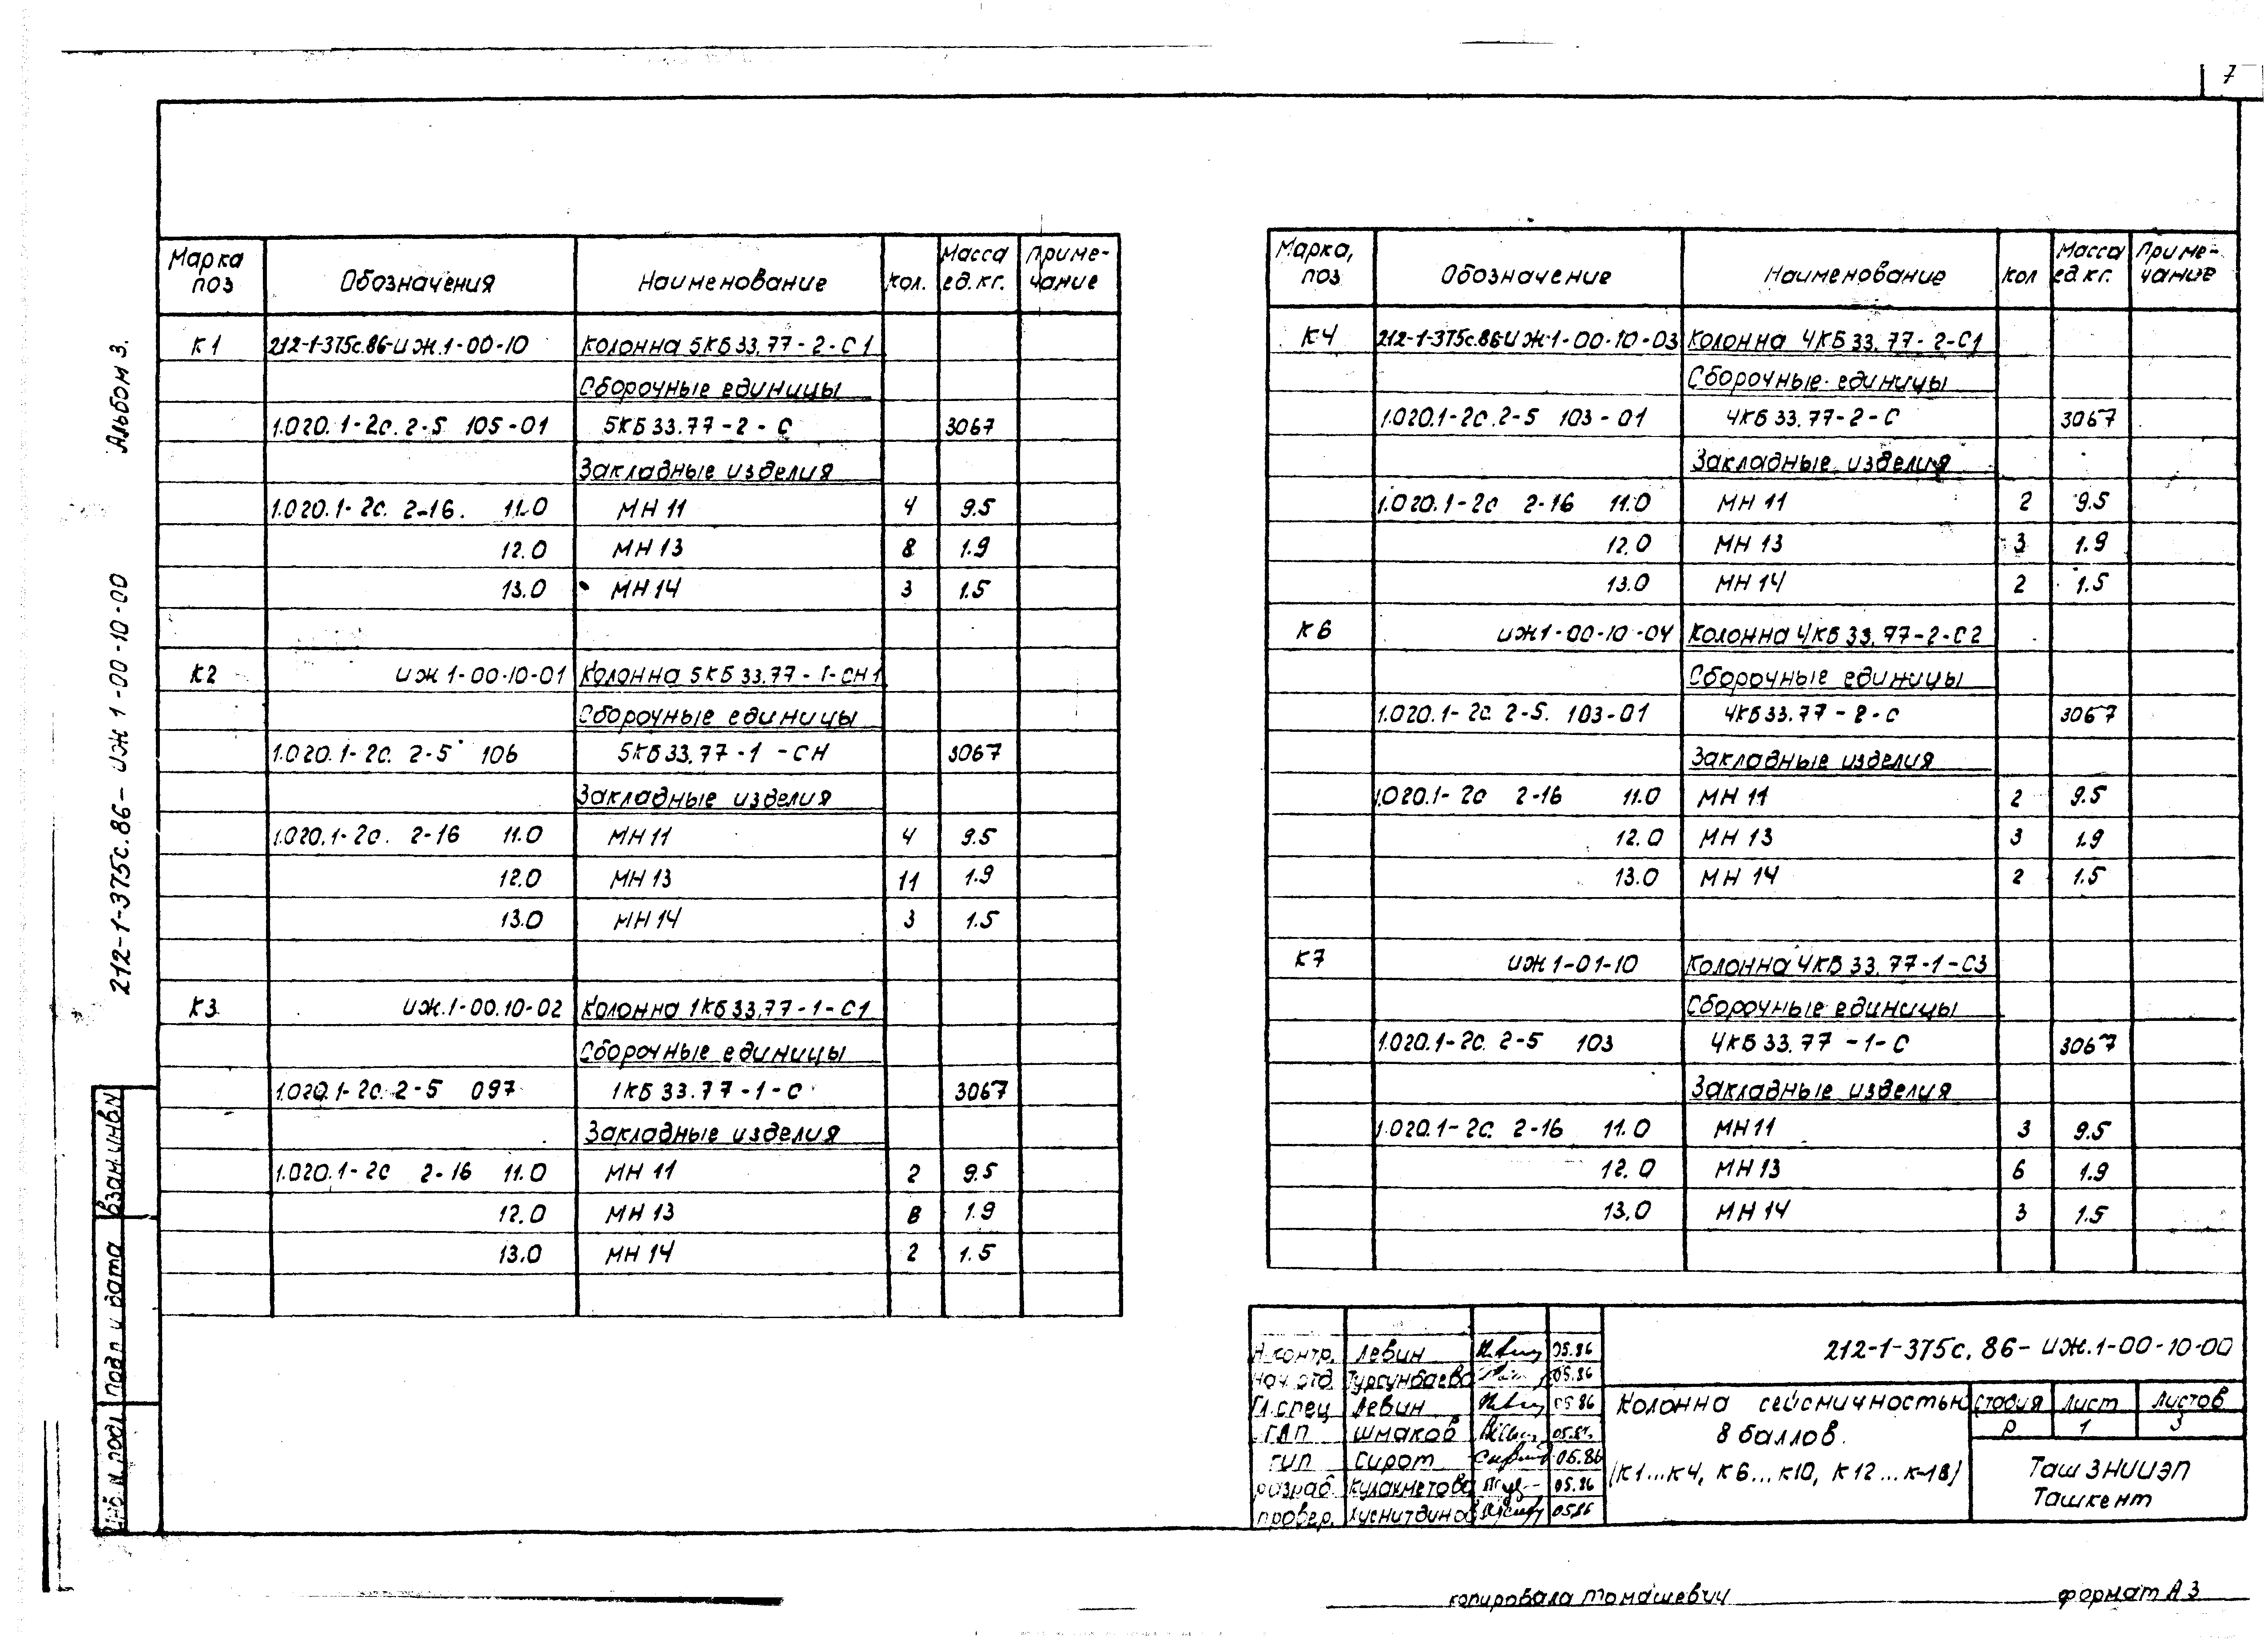 7
Альбом 3.
212-1-375с.86- ИЖ 1-00-10-00
Марка поз Обозначения Наименование Кол. Масса ед.кг. Приме-чание
К1 212-1-375с.86-ИЖ.1-00-10 Колонна 5КБ 33.77-2-С1
Сборочные единицы
1.020.1-2с.2-5 105-01 5КБ 33.77-2-С 3067
Закладные изделия
1.020.1-2с. 2-16. 11.0 МН 11 4 9.5
12.0 МН 13 8 1.9
13.0 МН 14 3 1.5
К2 ИЖ 1-00-10-01 Колонна 5КБ 33.77-1-СН1
Сборочные единицы
1.020.1-2с. 2-5 106 5КБ 33.77-1-СН 3067
Закладные изделия
1.020.1-2с. 2-16 11.0 МН 11 4 9.5
12.0 МН 13 11 1.9
13.0 МН 14 3 1.5
К3 ИЖ.1-00.10-02 Колонна 1КБ 33.77-1-С1
Сборочные единицы
1.020.1-2с. 2-5 097 1КБ 33.77-1-С 3067
Закладные изделия
1.020.1-2с 2-16 11.0 МН 11 2 9.5
12.0 МН 13 8 1.9
13.0 МН 14 2 1.5
Марка, поз Обозначение Наименование Кол Масса ед.кг. Приме-чание
К4 212-1-375с.86-ИЖ-1-00-10-03 Колонна 4КБ 33.77-2-С1
Сборочные единицы
1.020.1-2с.2-5 103-01 4КБ 33.77-2-С 3067
Закладные изделия
1.020.1-2с 2-16 11.0 МН 11 2 9.5
12.0 МН 13 3 1.9
13.0 МН 14 2 1.5
К6 ИЖ1-00-10-04 Колонна 4КБ 33.77-2-С2
Сборочные единицы
1.020.1-2с. 2-5. 103-01 4КБ 33.77-2-С 3067
Закладные изделия
1.020.1-2с 2-16 11.0 МН 11 2 9.5
12.0 МН 13 3 1.9
13.0 МН 14 2 1.5
К7 ИЖ 1-01-10 Колонна 4КБ 33.77-1-С3
Сборочные единицы
1.020.1-2с. 2-5 103 4КБ 33.77-1-С 3067
Закладные изделия
1.020.1-2с. 2-16 11.0 МН 11 3 9.5
12.0 МН 13 6 1.9
13.0 МН 14 3 1.5
Взан.инв№
Подп и дата
Инв № подл
Н.контр. Левин 05.86
Нач.отд. Тургунбаева 05.86
Гл.спец Левин 05.86
ГАП Шмаков 05.86
ГИП Сирот 05.86
разраб. Кулахметова 05.86
провер. Хуснитдинов 05.86
212-1-375с.86- ИЖ.1-00-10-00
Колонна сейсмичностью
8 баллов.
(К1...К4, К6...К10, К12...К-18)
Стадия Лист Листов
Р 1 3
Таш ЗНИИЭП
Ташкент
копировала Томашевич
формат А3